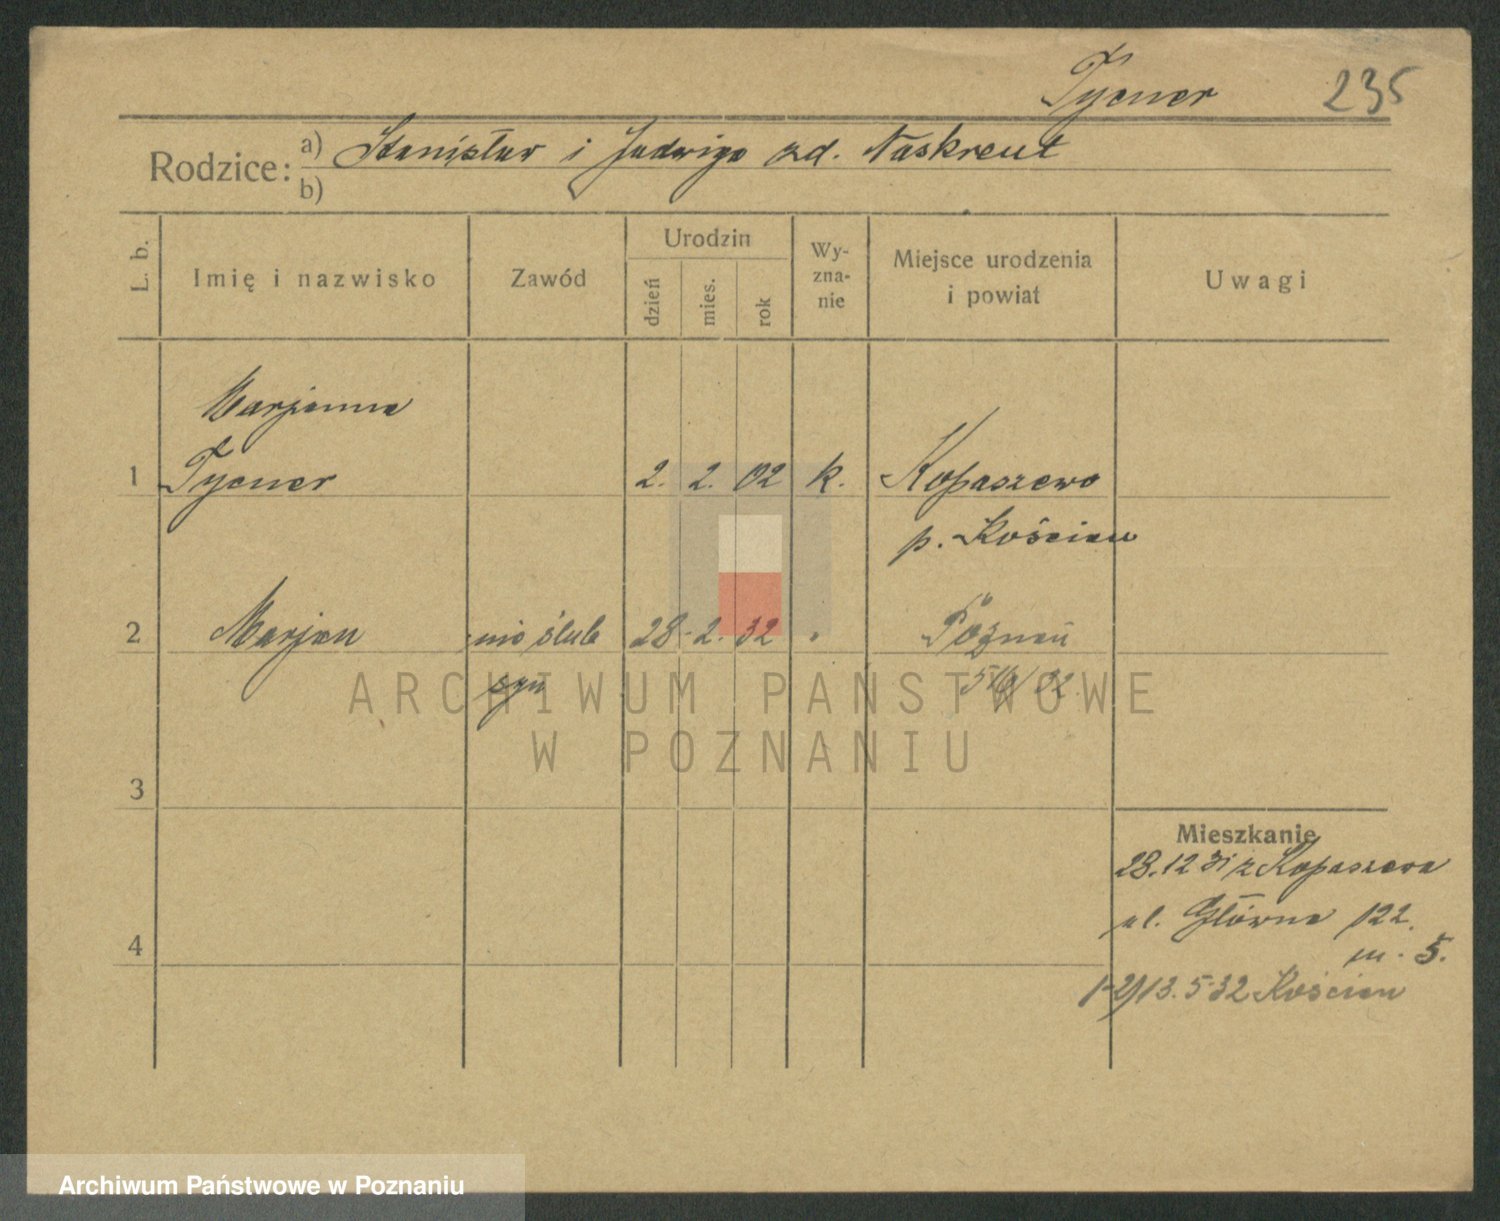 Tycner 235
Rodzice: a) Stanisław i Jadwiga zd. Naskrent
b)
L. b. Imię i nazwisko Zawód Urodzin dzień mies. rok Wy-zna-nie Miejsce urodzenia i powiat Uwagi
Marjanna
1 Tycner 2. 2. 02 k. Kopaszewo
p. Kościan
2 Marjan nie ślub 28. 2. 32 " Poznań
syn /32
ARCHIWUM PAŃSTWOWE
W POZNANIU
3
Mieszkanie
28.12 31 z Kopaszewa
ul. Główna 122.
4 m. 5.
1-2/13.5.32 Kościan
Archiwum Państwowe w Poznaniu